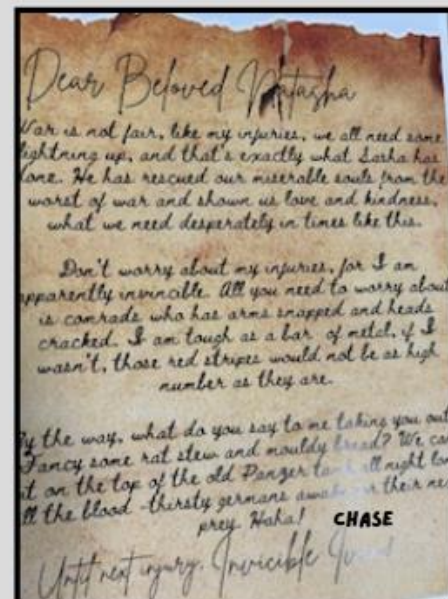 Dear Beloved Natasha
War is not fair, like my injuries, we all need some
lightning up, and that's exactly what Sasha has
done. He has rescued our miserable souls from the
worst of war and shown us love and kindness,
what we need desperately in times like this.
Don't worry about my injuries, for I am
apparently invincible. All you need to worry about
is comrade who has arms snapped and heads
cracked. I am tough as a bar of metal, if I
wasn't, those red stripes would not be as high
number as they are.
By the way, what do you say to me taking you out
Fancy some rat stew and mouldy bread? We can
it on the top of the old Panzer tank all night
all the blood-thirsty germans their
prey. Haha! CHASE
Until next injury, Invicible